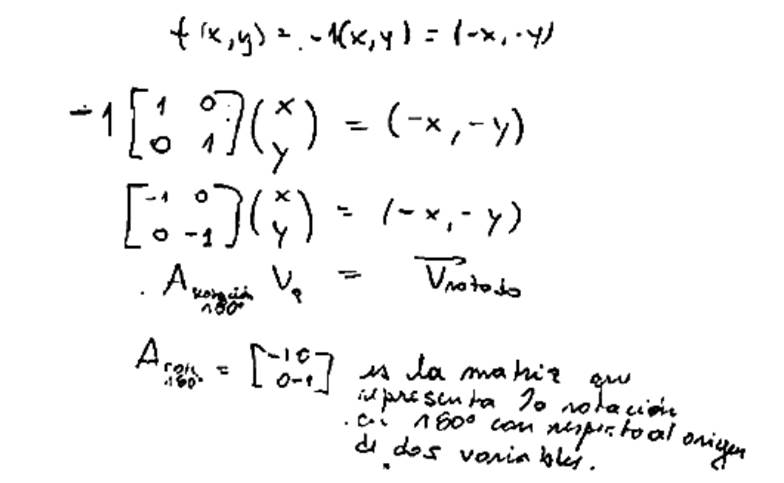 f(x,y) = -1(x,y) = (-x,-y)
-1 [1 0; 0 1] (x y) = (-x,-y)
[-1 0; 0 -1] (x y) = (-x,-y)
A rotación 180° V = V rotado
A 180° = [-1 0; 0 -1] es la matriz que
representa la rotación
180° con respecto al origen
de dos variables.